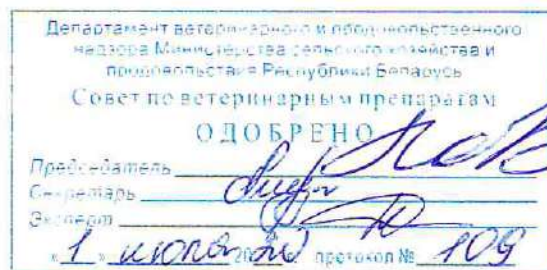 Департамент ветеринарного и продовольственного
надзора Министерства сельского хозяйства и
продовольствия Республики Беларусь
Совет по ветеринарным препаратам
ОДОБРЕНО
Председатель
Секретарь
Эксперт
«1» июля 20 протокол № 109